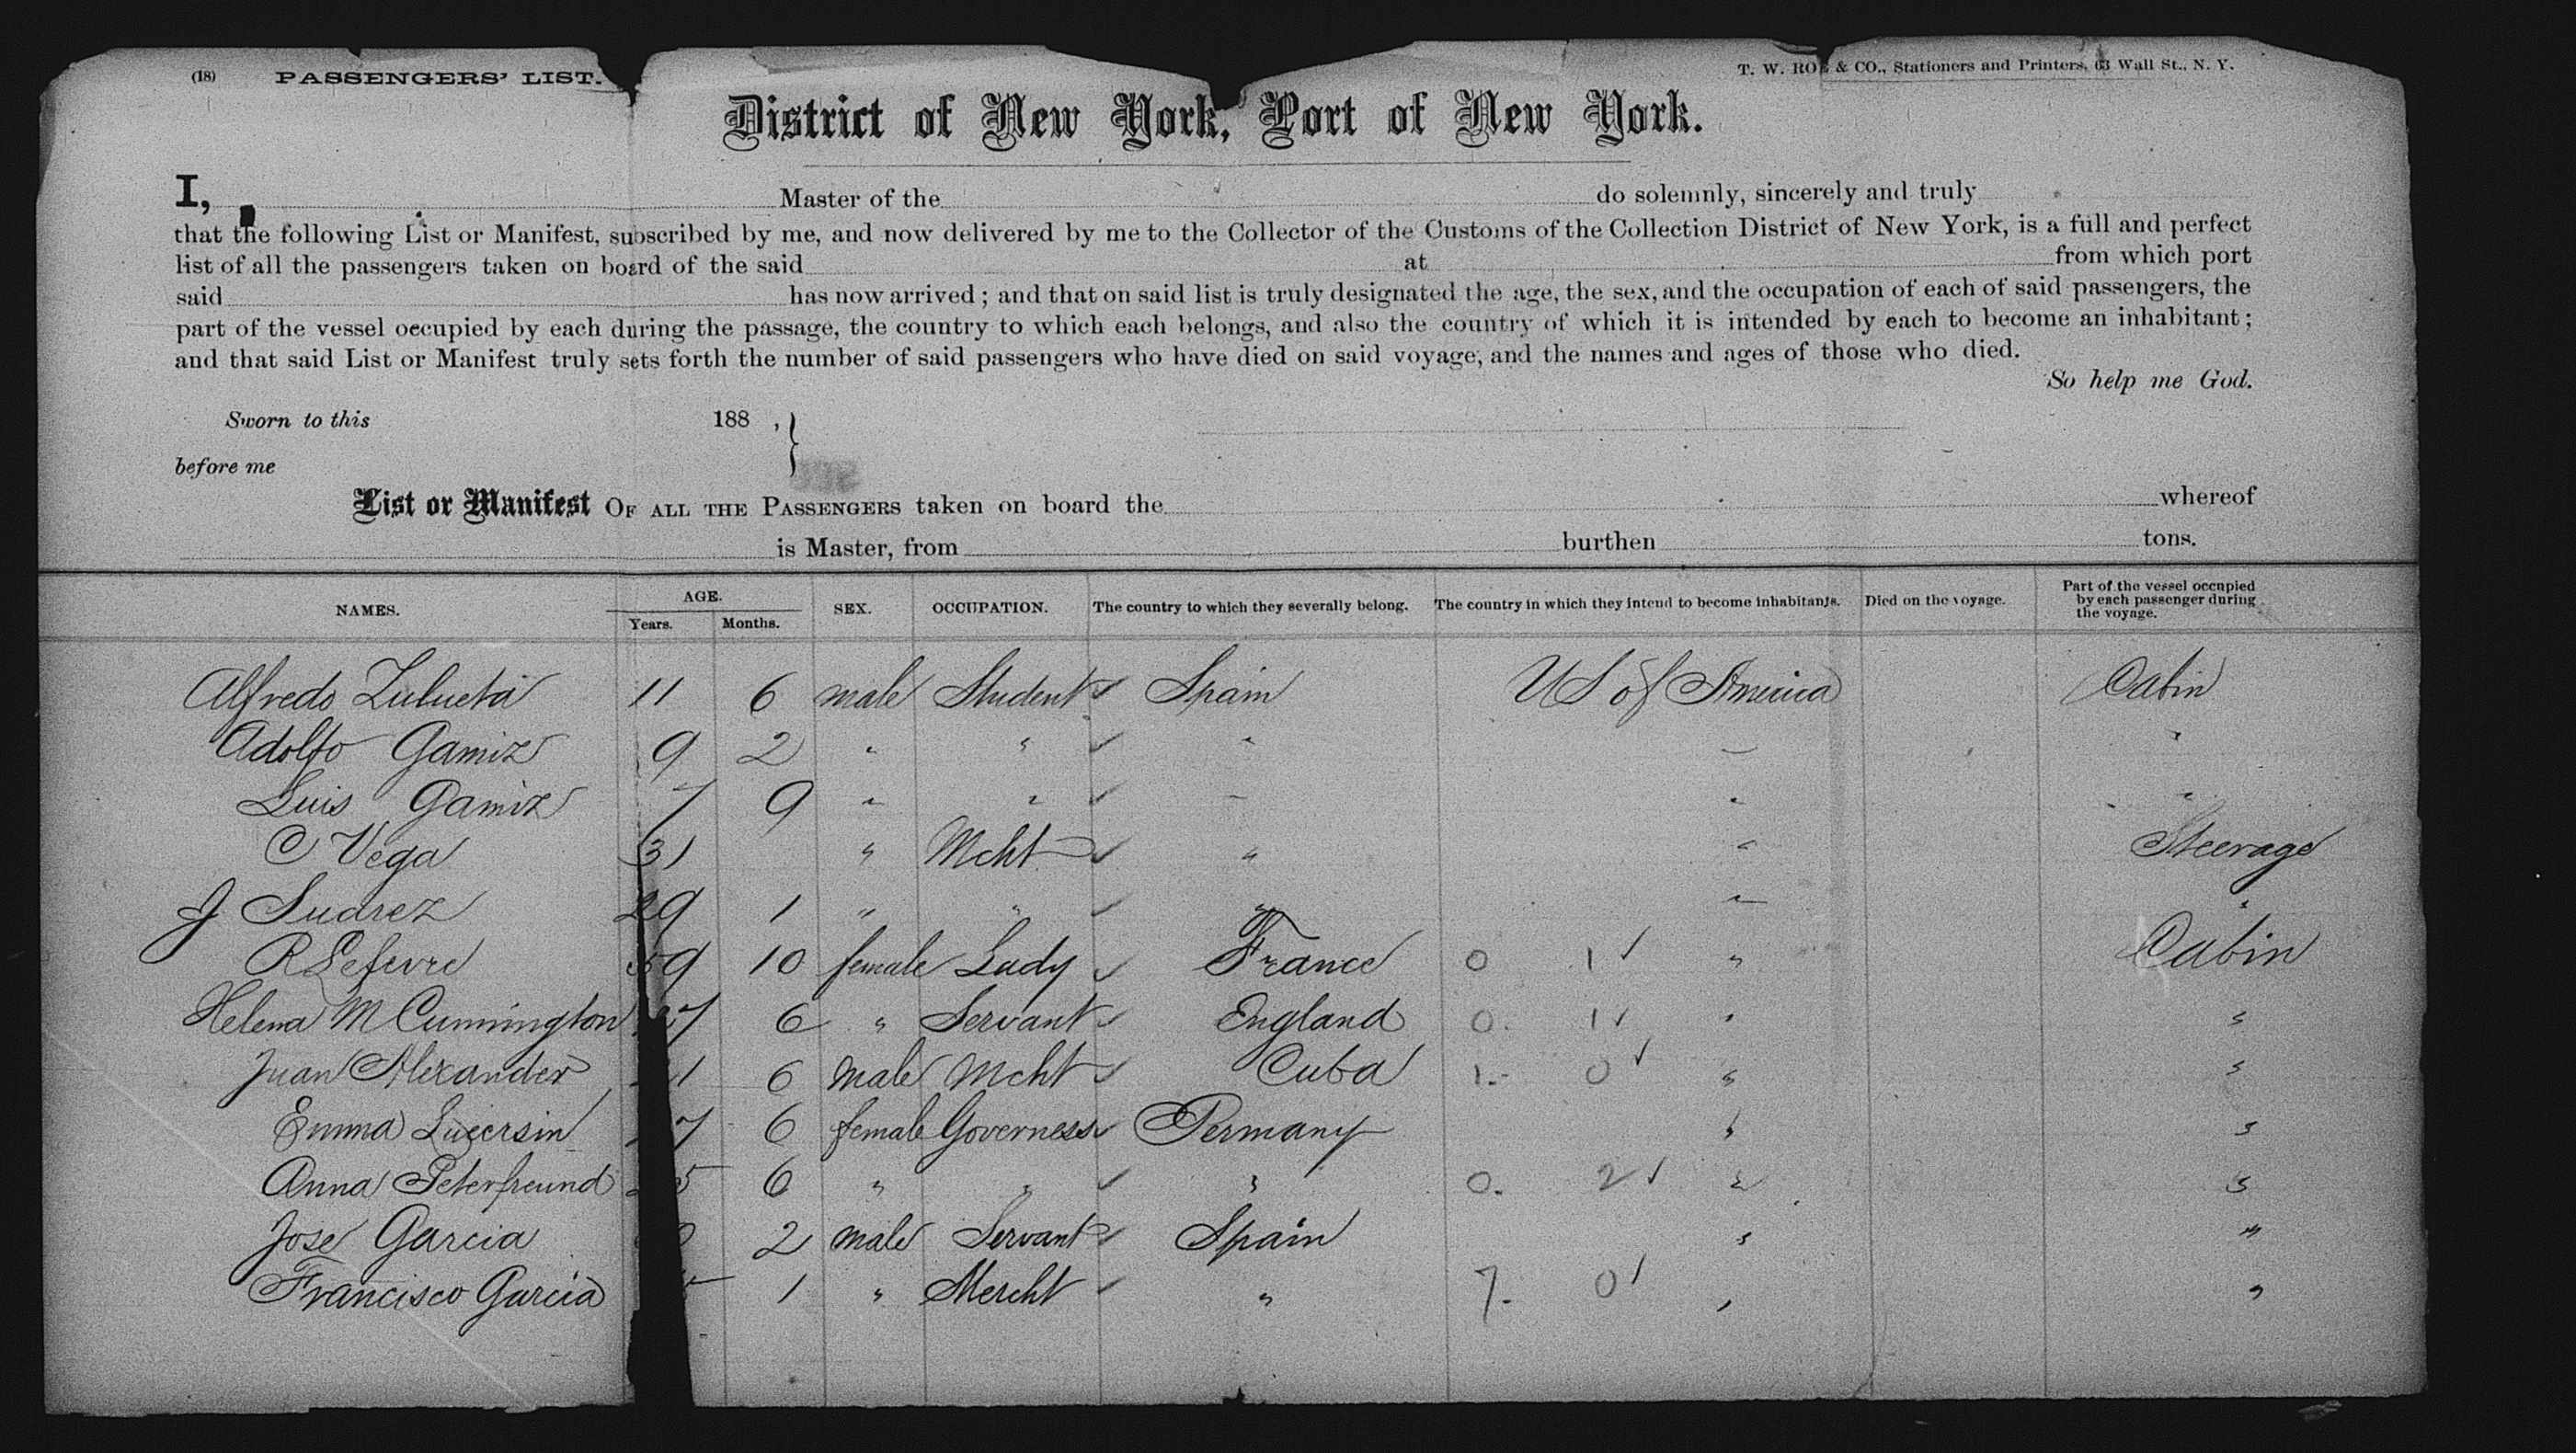 (18) PASSENGERS' LIST.
T. W. ROE & CO., Stationers and Printers, 63 Wall St., N. Y.
District of New York, Port of New York.
I, Master of the do solemnly, sincerely and truly
that the following List or Manifest, subscribed by me, and now delivered by me to the Collector of the Customs of the Collection District of New York, is a full and perfect
list of all the passengers taken on board of the said at from which port
said has now arrived; and that on said list is truly designated the age, the sex, and the occupation of each of said passengers, the
part of the vessel occupied by each during the passage, the country to which each belongs, and also the country of which it is intended by each to become an inhabitant;
and that said List or Manifest truly sets forth the number of said passengers who have died on said voyage, and the names and ages of those who died.
So help me God.
Sworn to this 188 ,
before me
List or Manifest OF ALL THE PASSENGERS taken on board the whereof
is Master, from burthen tons.
NAMES. AGE. Years. Months. SEX. OCCUPATION. The country to which they severally belong. The country in which they intend to become inhabitants. Died on the voyage. Part of the vessel occupied by each passenger during the voyage.
Alfredo Zulueta 11 6 male Student ✓ Spain US of America Cabin
Adolfo Gamiz 9 2 " " ✓ " " "
Luis Gamiz 7 9 " " ✓ " " "
C Vega 31 " Mcht ✓ " " Steerage
J Suarez 29 1 " " ✓ " " "
R Lefevre 59 10 female Lady ✓ France 0 1 ✓ " Cabin
Helena M Cunnington 27 6 " Servant ✓ England 0. 1 ✓ " "
Juan Alexander 1 6 male Mcht ✓ Cuba 1.- 0 ✓ " "
Emma 7 6 female Governess ✓ Germany " "
Anna Peterfreund 5 6 " " ✓ " 0. 2 ✓ " "
Jose Garcia 0 2 male Servant ✓ Spain " "
Francisco Garcia 1 " Mercht ✓ " 7- 0 ✓ " "